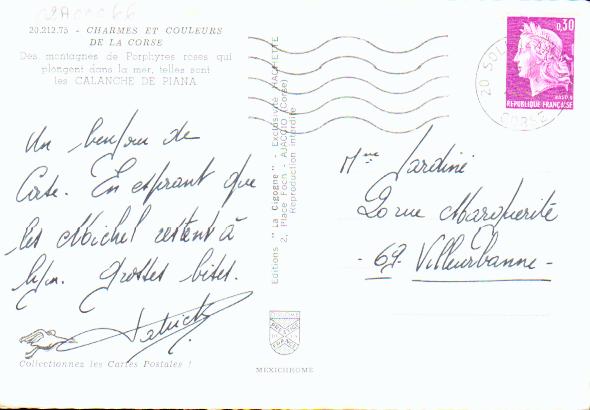 20.212.75 - CHARMES ET COULEURS
DE LA CORSE
Des montagnes de Porphyres roses qui
plongent dans la mer, telles sont
les CALANCHE DE PIANA
Un bonjour de
Corse. En espérant que
les Michel restent à
Lyon. Grosses bises.
Patrick
Collectionnez les Cartes Postales !
Editions "La Cigogne" - Exclusivité HACHETTE
2, Place Foch - AJACCIO (Corse)
Reproduction interdite
MEXICHROME
0,30
REPUBLIQUE FRANÇAISE
20
CORSE
Mme Jardine
20 rue Marguerite
- 69 - Villeurbanne -